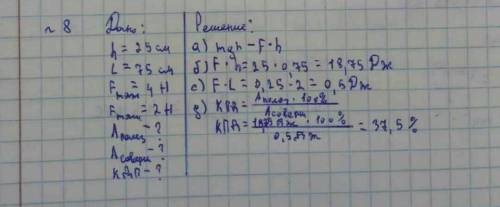 ~ 8
Дано:
h = 25 см
L = 75 см
F = 4 H
F = 2 H
A полез - ?
A соверш - ?
КДП - ?
Решение:
а) mgh - F · h
б) F · h = 25 · 0,75 = 18,75 Дж
с) F · L = 0,25 · 2 = 0,5 Дж
д) КПД = A полез · 100% / A соверш
КПД = Дж · 100% / 0,5 Дж = 37,5 %